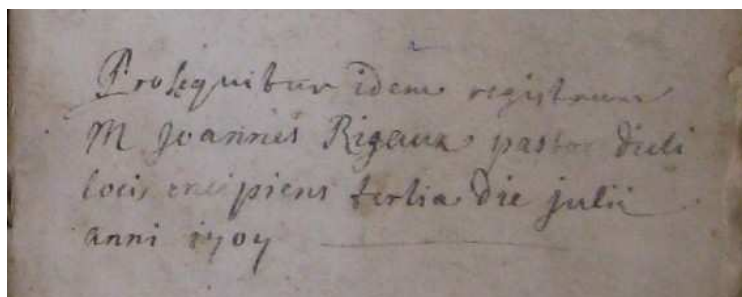 Prosequitur idem registrum
M Joannes Rigaux pastor dicti
loci, incipiens tertia die julii
anni 1707